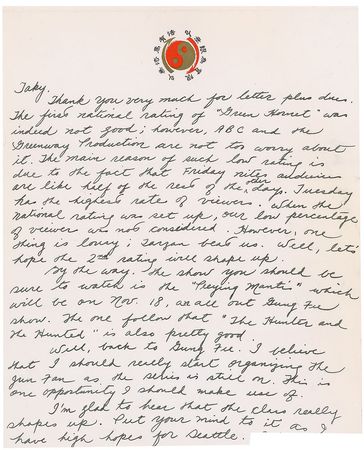 Taky.
Thank you very much for letter plus dues.
The first national rating of "Green Hornet" was
indeed not good; however, ABC and the
Greenway Production are not too worry about
it. The main reason of such low rating is
due to the fact that Friday nites audience
are like half of the rest of the other days. Tuesday
has the highest rate of viewers. When the
national rating was set up, our low percentage
of viewer was not considered. However, one
thing is lousy; Tarzan beat us. Well, let's
hope the 2nd rating will shape up.
By the way. The show you should be
sure to watch is the "Preying Mantis" which
will be on Nov. 18, an all out Gung Fu
show. The one follow that "The Hunter and
the Hunted" is also pretty good.
Well, back to Gung Fu. I believe
that I should really start organizing the
Jun Fan as the series is still on. This is
one opportunity I should make use of.
I'm glad to hear that the class really
shapes up. Put your mind to it as I
have high hopes for Seattle.